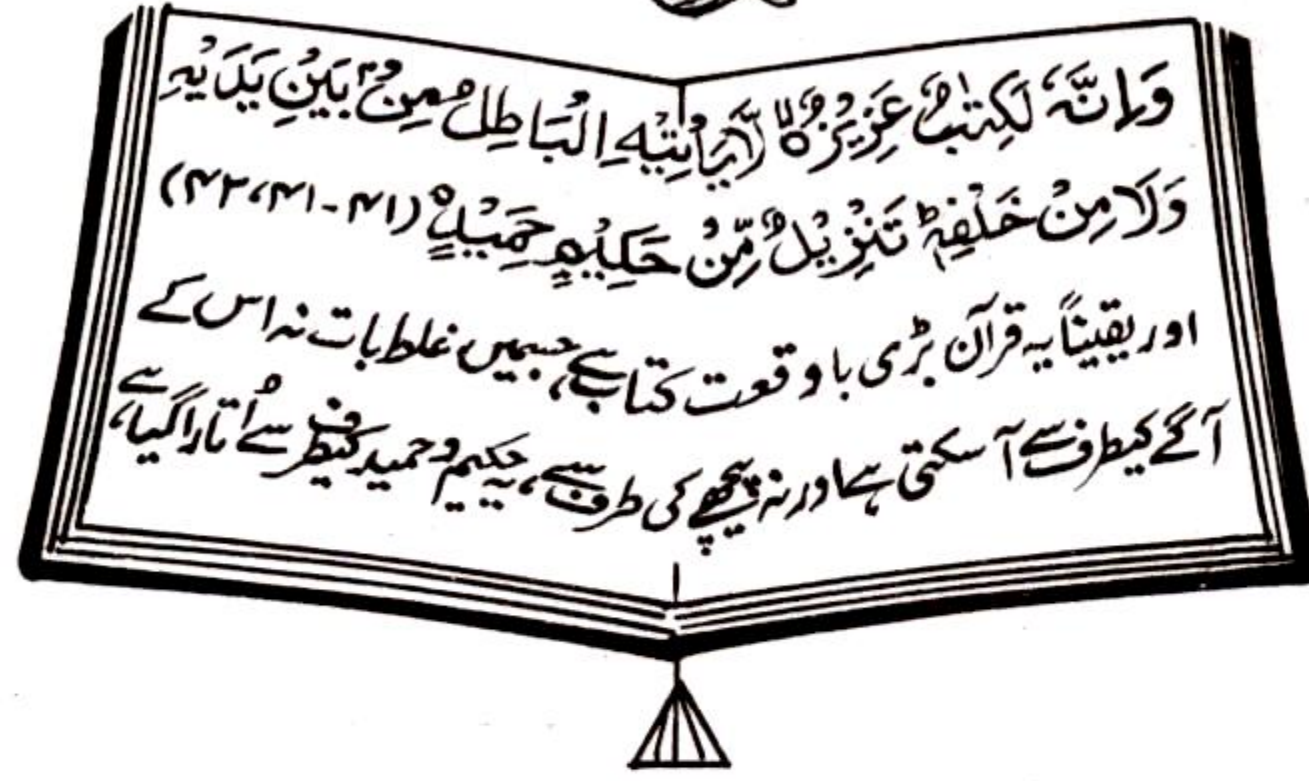 وَاِنَّہٗ لَکِتٰبٌ عَزِیْزٌ ۙ لَّا یَاْتِیْہِ الْبَاطِلُ مِنْۢ بَیْنِ یَدَیْہِ
وَلَا مِنْ خَلْفِہٖ ؕ تَنْزِیْلٌ مِّنْ حَکِیْمٍ حَمِیْدٍ (۴۱-۴۱،۴۲)
اور یقیناً یہ قرآن بڑی باوقعت کتاب ہے، جسمیں غلط بات نہ اس کے
آگے کیطرف سے آ سکتی ہے اور نہ پیچھے کی طرف سے، یہ حکیم و حمید کیطرف سے اُتارا گیا ہے،